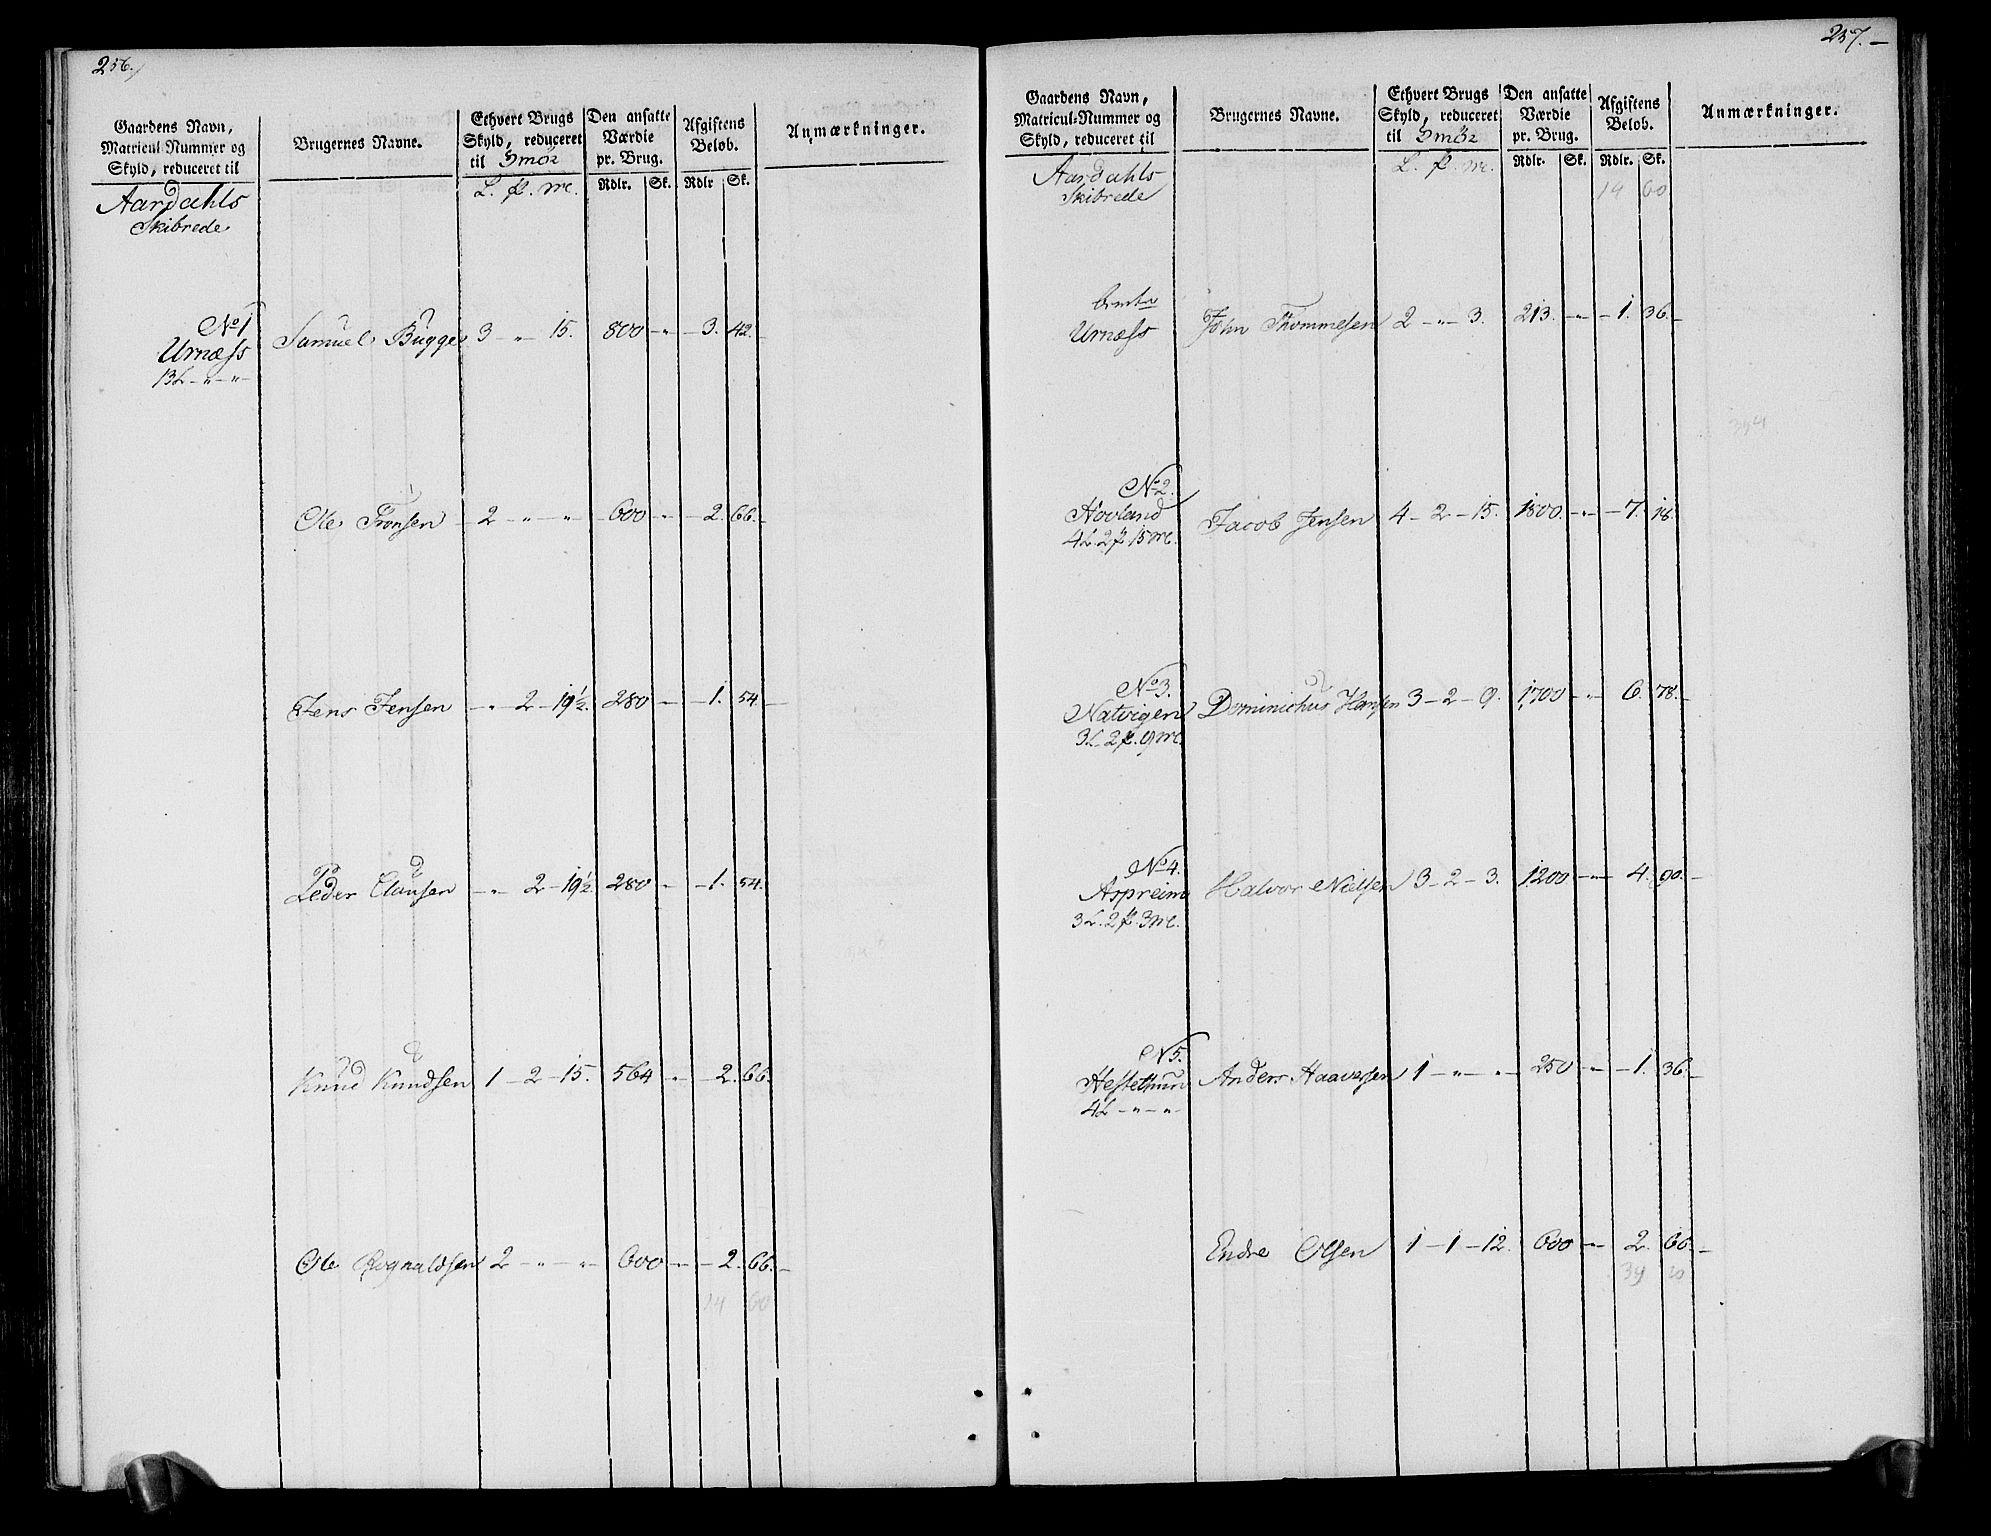 256.
Gaardens Navn, Matricul-Nummer og Skyld, reduceret til
Brugernes Navne.
Ethvert Brugs Skyld, reduceret til Smör
Den ansatte Værdie pr. Brug.
Afgiftens Beløb.
Anmærkninger.
L. ℔. mr. Rdlr. Sk. Rdlr Sk.
Aardahls
Skibrede
No 1 Samuel Bugge 3 - " 15. 800 - " - 3. 42.
Urnæss
13 L - " - " -
Ole Tronsen 2 - " - " 600 - " - 2. 66.
Jens Jensen - " 2 - 19½. 280 - " - 1. 54.
Peder Clausen - " 2 - 19½ 280 - " - 1. 54.
Knud Knudsen 1 - 2 - 15. 564 - " - 2. 66.
Ole Rognaldsen 2 - " - " 600 - " - 2. 66.
14 60
257.
Gaardens Navn, Matricul-Nummer og Skyld, reduceret til
Brugernes Navne.
Ethvert Brugs Skyld, reduceret til Smör
Den ansatte Værdie pr. Brug.
Afgiftens Beløb.
Anmærkninger.
L. ℔. mr. Rdlr. Sk. Rdlr. Sk.
Aardahls
Skibrede
14 60
Urnæss John Thommesen 2 - " - 3. 213. - " - 1. 36.
394
No 2.
Hovland Jacob Jensen 4 - 2 - 15. 1800. - " - 7. 18.
4 L. 2 ℔ 15 mr.
No 3.
Natvigen Dominichus Hansen 3 - 2 - 9. 1700 - " - 6. 78.
3 L. 2 ℔. 9 mr.
No 4.
Aspreim Halvor Nielsen 3 - 2 - 3. 1200 - " - 4. 90.
3 L. 2 ℔. 3 mr.
N 5.
Hestethun Anders Haaversen 1 - " - " 250 - " - 1. 36.
4 L - " - "
Endre Olsen 1 - 1 - 12. 600 - " - 2. 66.
39 20